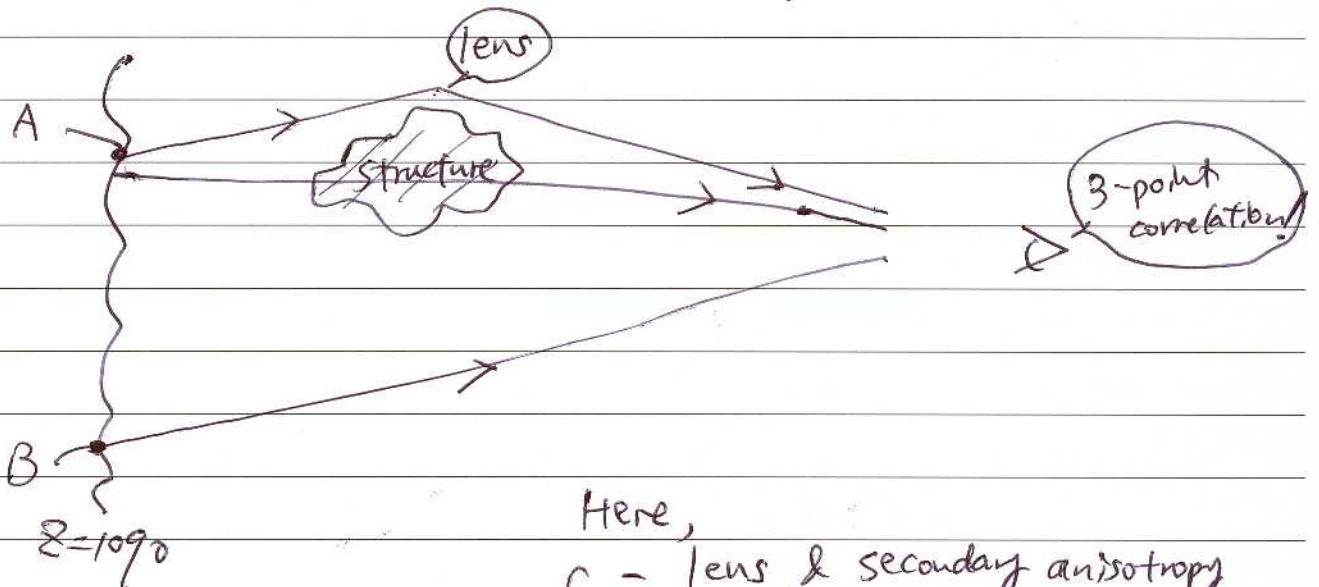 lens
A
structure
3-point
correlation!
B
Z=1090
Here,
- lens & secondary anisotropy